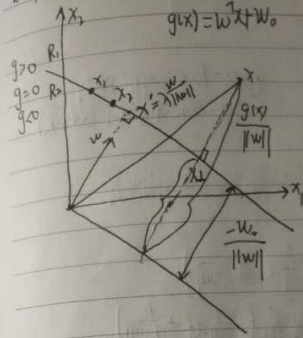 X₂
g(x)=wᵀx+w₀
g>0 R₁
g=0 R₂
g<0
x₁
x₂
x
w
g(x)/||w||
X⊥
X₁
-w₀/||w||